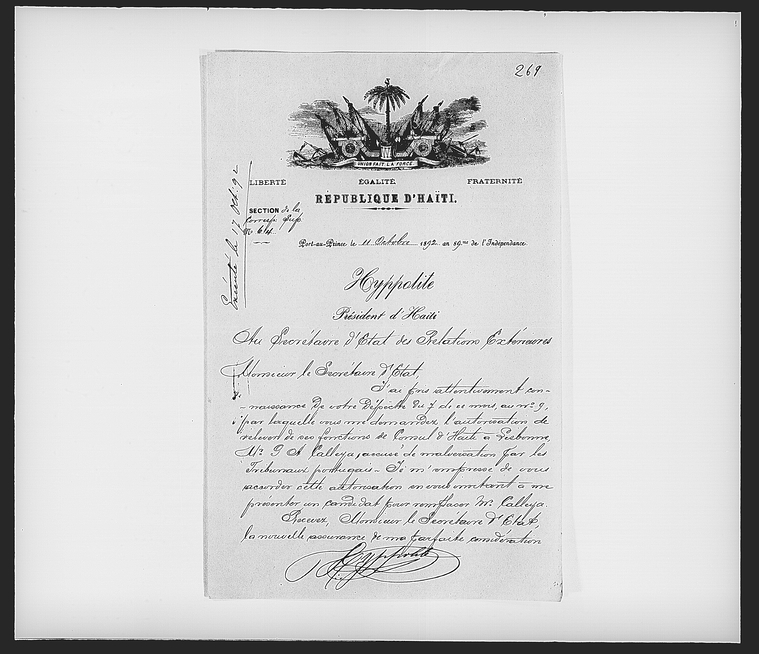 269
UNION FAIT LA FORCE
LIBERTÉ ÉGALITÉ FRATERNITÉ
RÉPUBLIQUE D'HAÏTI.
SECTION de la
Corresp.
Nº 614
Exécuté le 17 Oct. 92
Port-au-Prince le 11 Octobre 1892 an 89me de l'Indépendance
Hyppolite
Président d'Haïti
Au Secrétaire d'Etat des Relations Extérieures
Monsieur le Secrétaire d'Etat,
J'ai pris attentivement con-
-naissance de votre Dépêche du 7 de ce mois, au nº 9,
par laquelle vous me demandez l'autorisation de
relever de ses fonctions de Consul d'Haïti à Lisbonne,
Mr. A Calleya, accusé de malversation par les
Tribunaux portugais - Je m'empresse de vous
accorder cette autorisation en vous invitant à me
présenter un candidat pour remplacer Mr. Calleya.
Recevez, Monsieur le Secrétaire d'Etat,
la nouvelle assurance de ma parfaite considération
Hyppolite